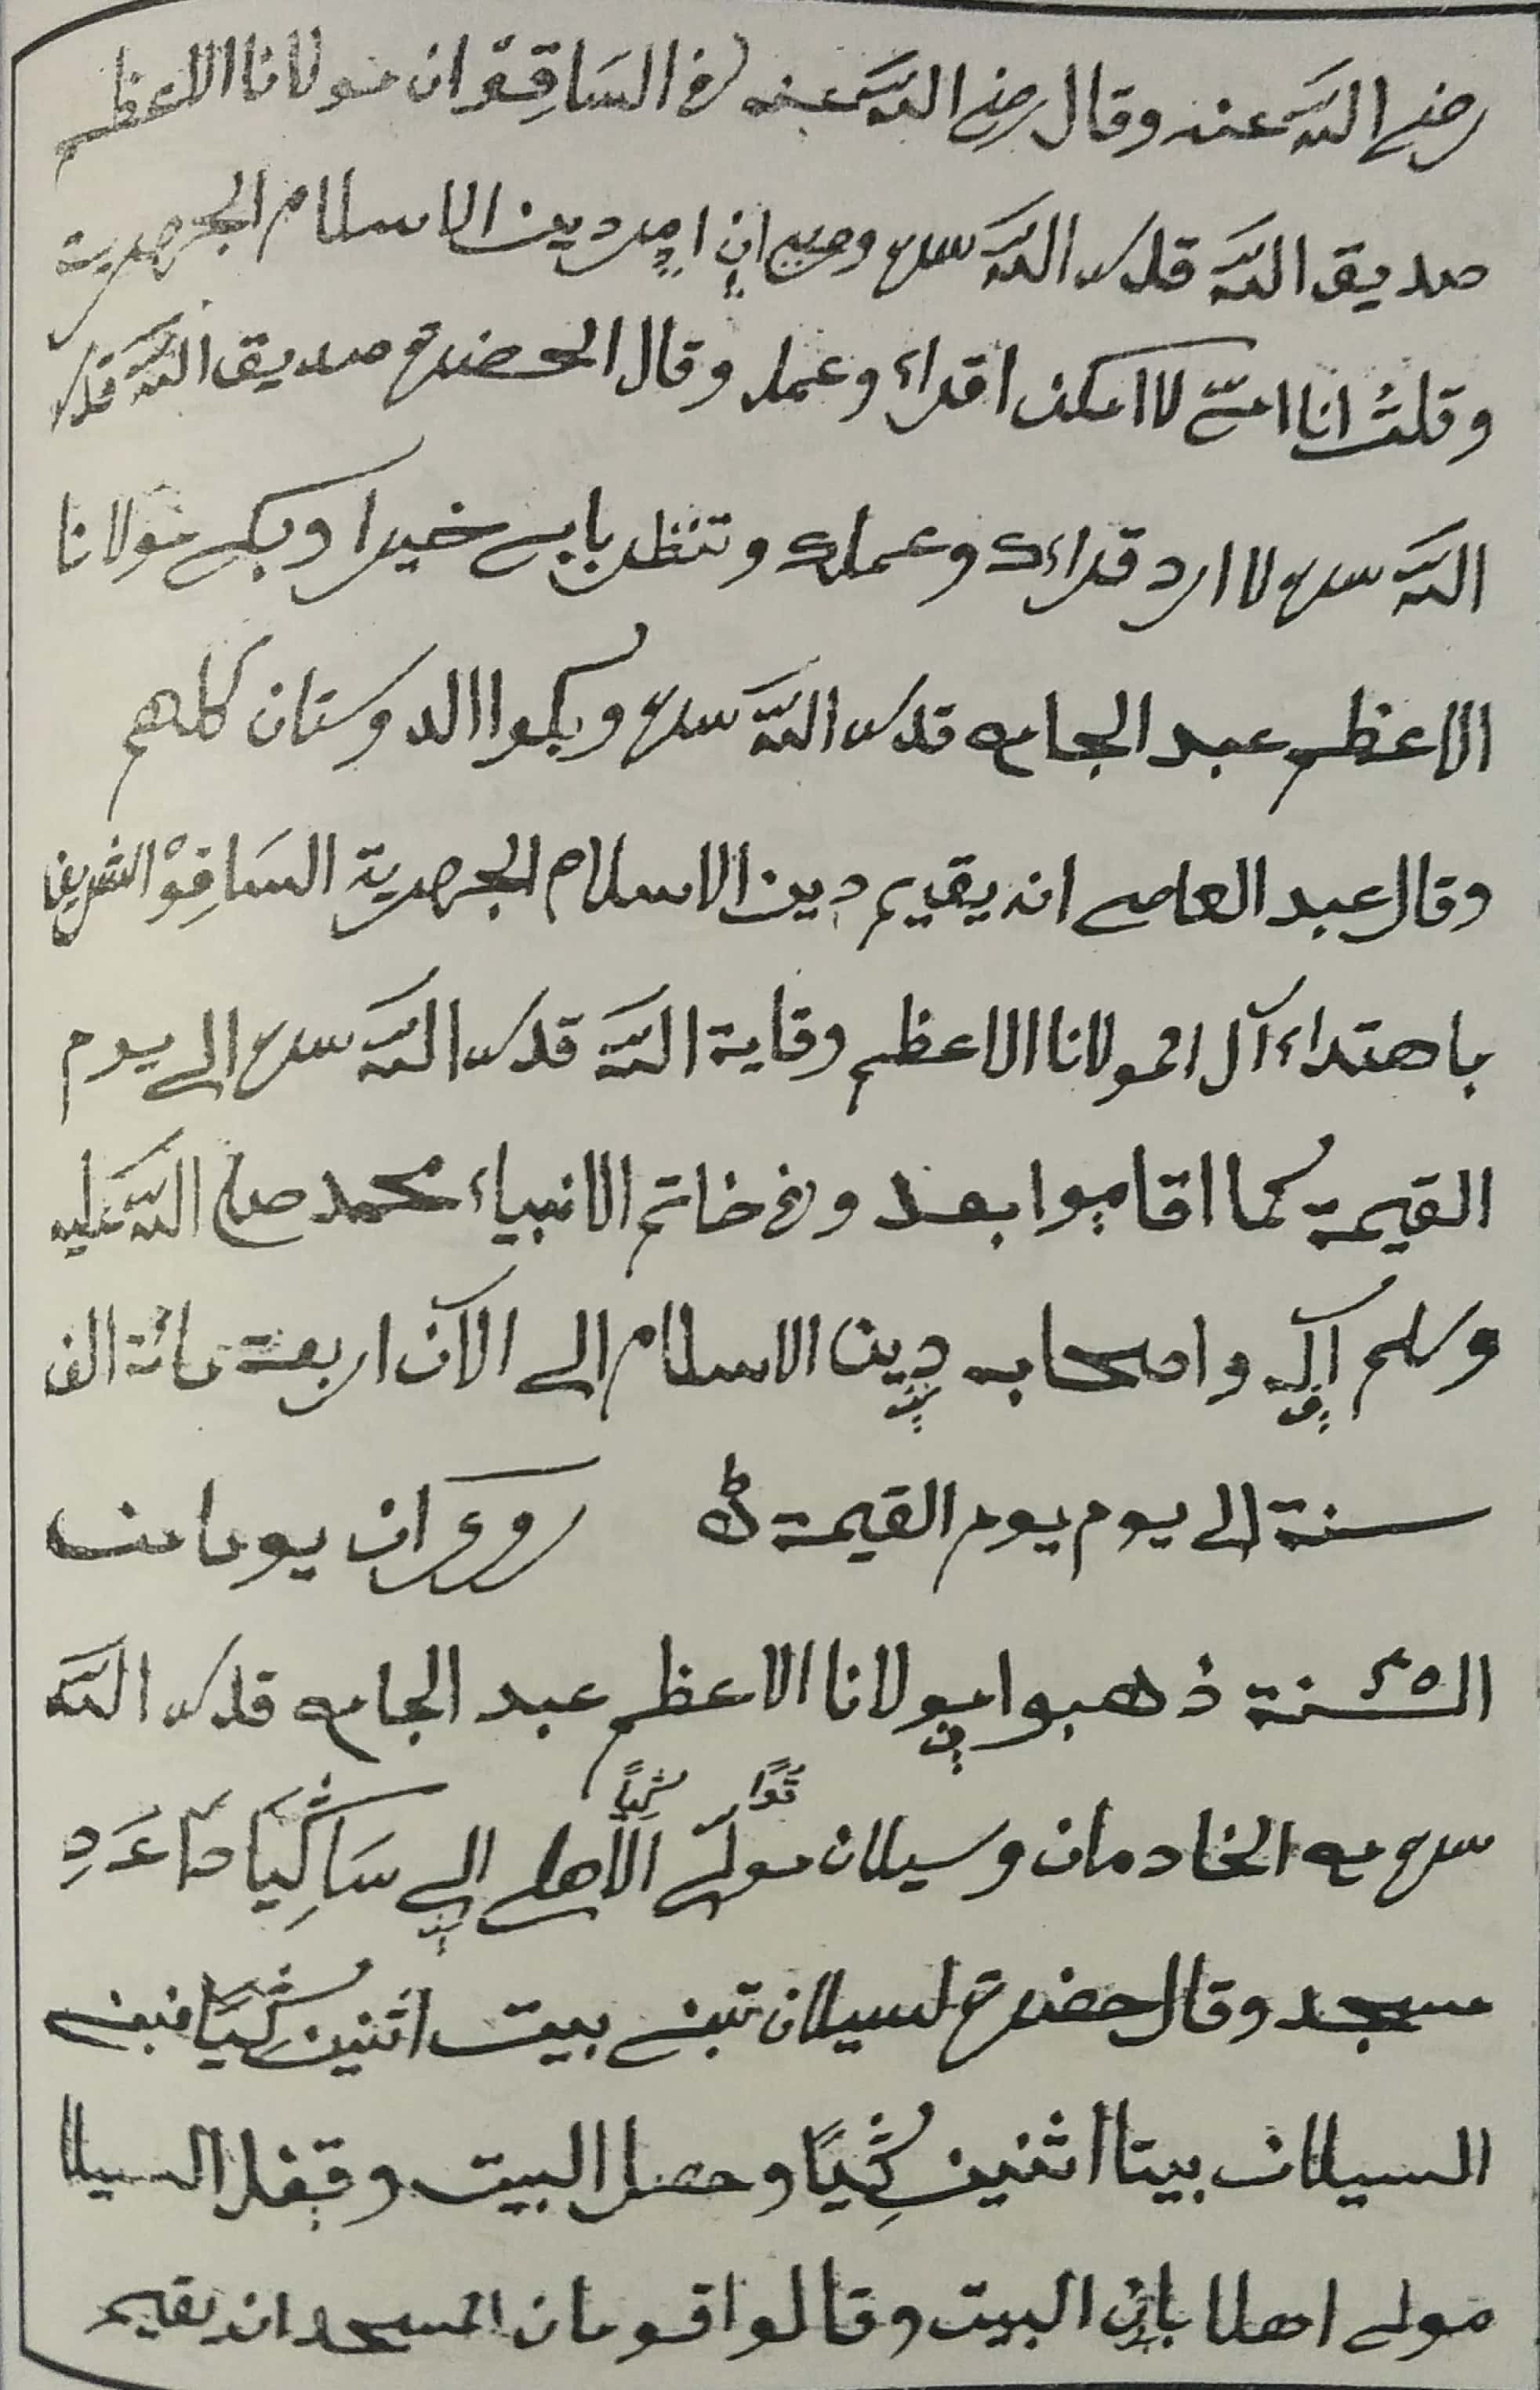 رضي الله عنه وقال رضي الله عنه في السَاقِقوْ ان مولانا الاعظم
صديق الله قدس الله سره وصي ان امر دين الاسلام الجهرية
وقلتُ انا امتي لا امكن اقراء وعمل وقال الحضرة صديق الله قدس
الله سره لا ارد قراءك وعملك وتنظر بابي خيرا وبكى مولانا
الاعظم عبد الجامع قدس الله سره وبكوا الدوستان كلهم
وقال عبد العاصي انه يقيم دين الاسلام الجهرية السَاقِقوْ الشريف
باهتداء آل المولانا الاعظم وقاية الله قدس الله سره الى يوم
القيمة كما اقاموا بعد وفي خاتم الانبياء محمد صلى الله عليه
وسلم آله واصحابه دين الاسلام الى الآن اربعة مائة الف
سنة الى يوم يوم القيمة روى ان يوما من
السنة ذهبوا مولانا الاعظم عبد الجامع قدس الله
سره مع الخادمان وسيلان مولى الأهلى الى سَاكِيَا
مسجد وقال حضرة لسيلان تبنى بيت اثنين فبنى
السيلان بيتا اثنين وحصل البيت وقفل السيلا
مولى اهلا بان البيت وقالوا قومان المسجد انه يقيم